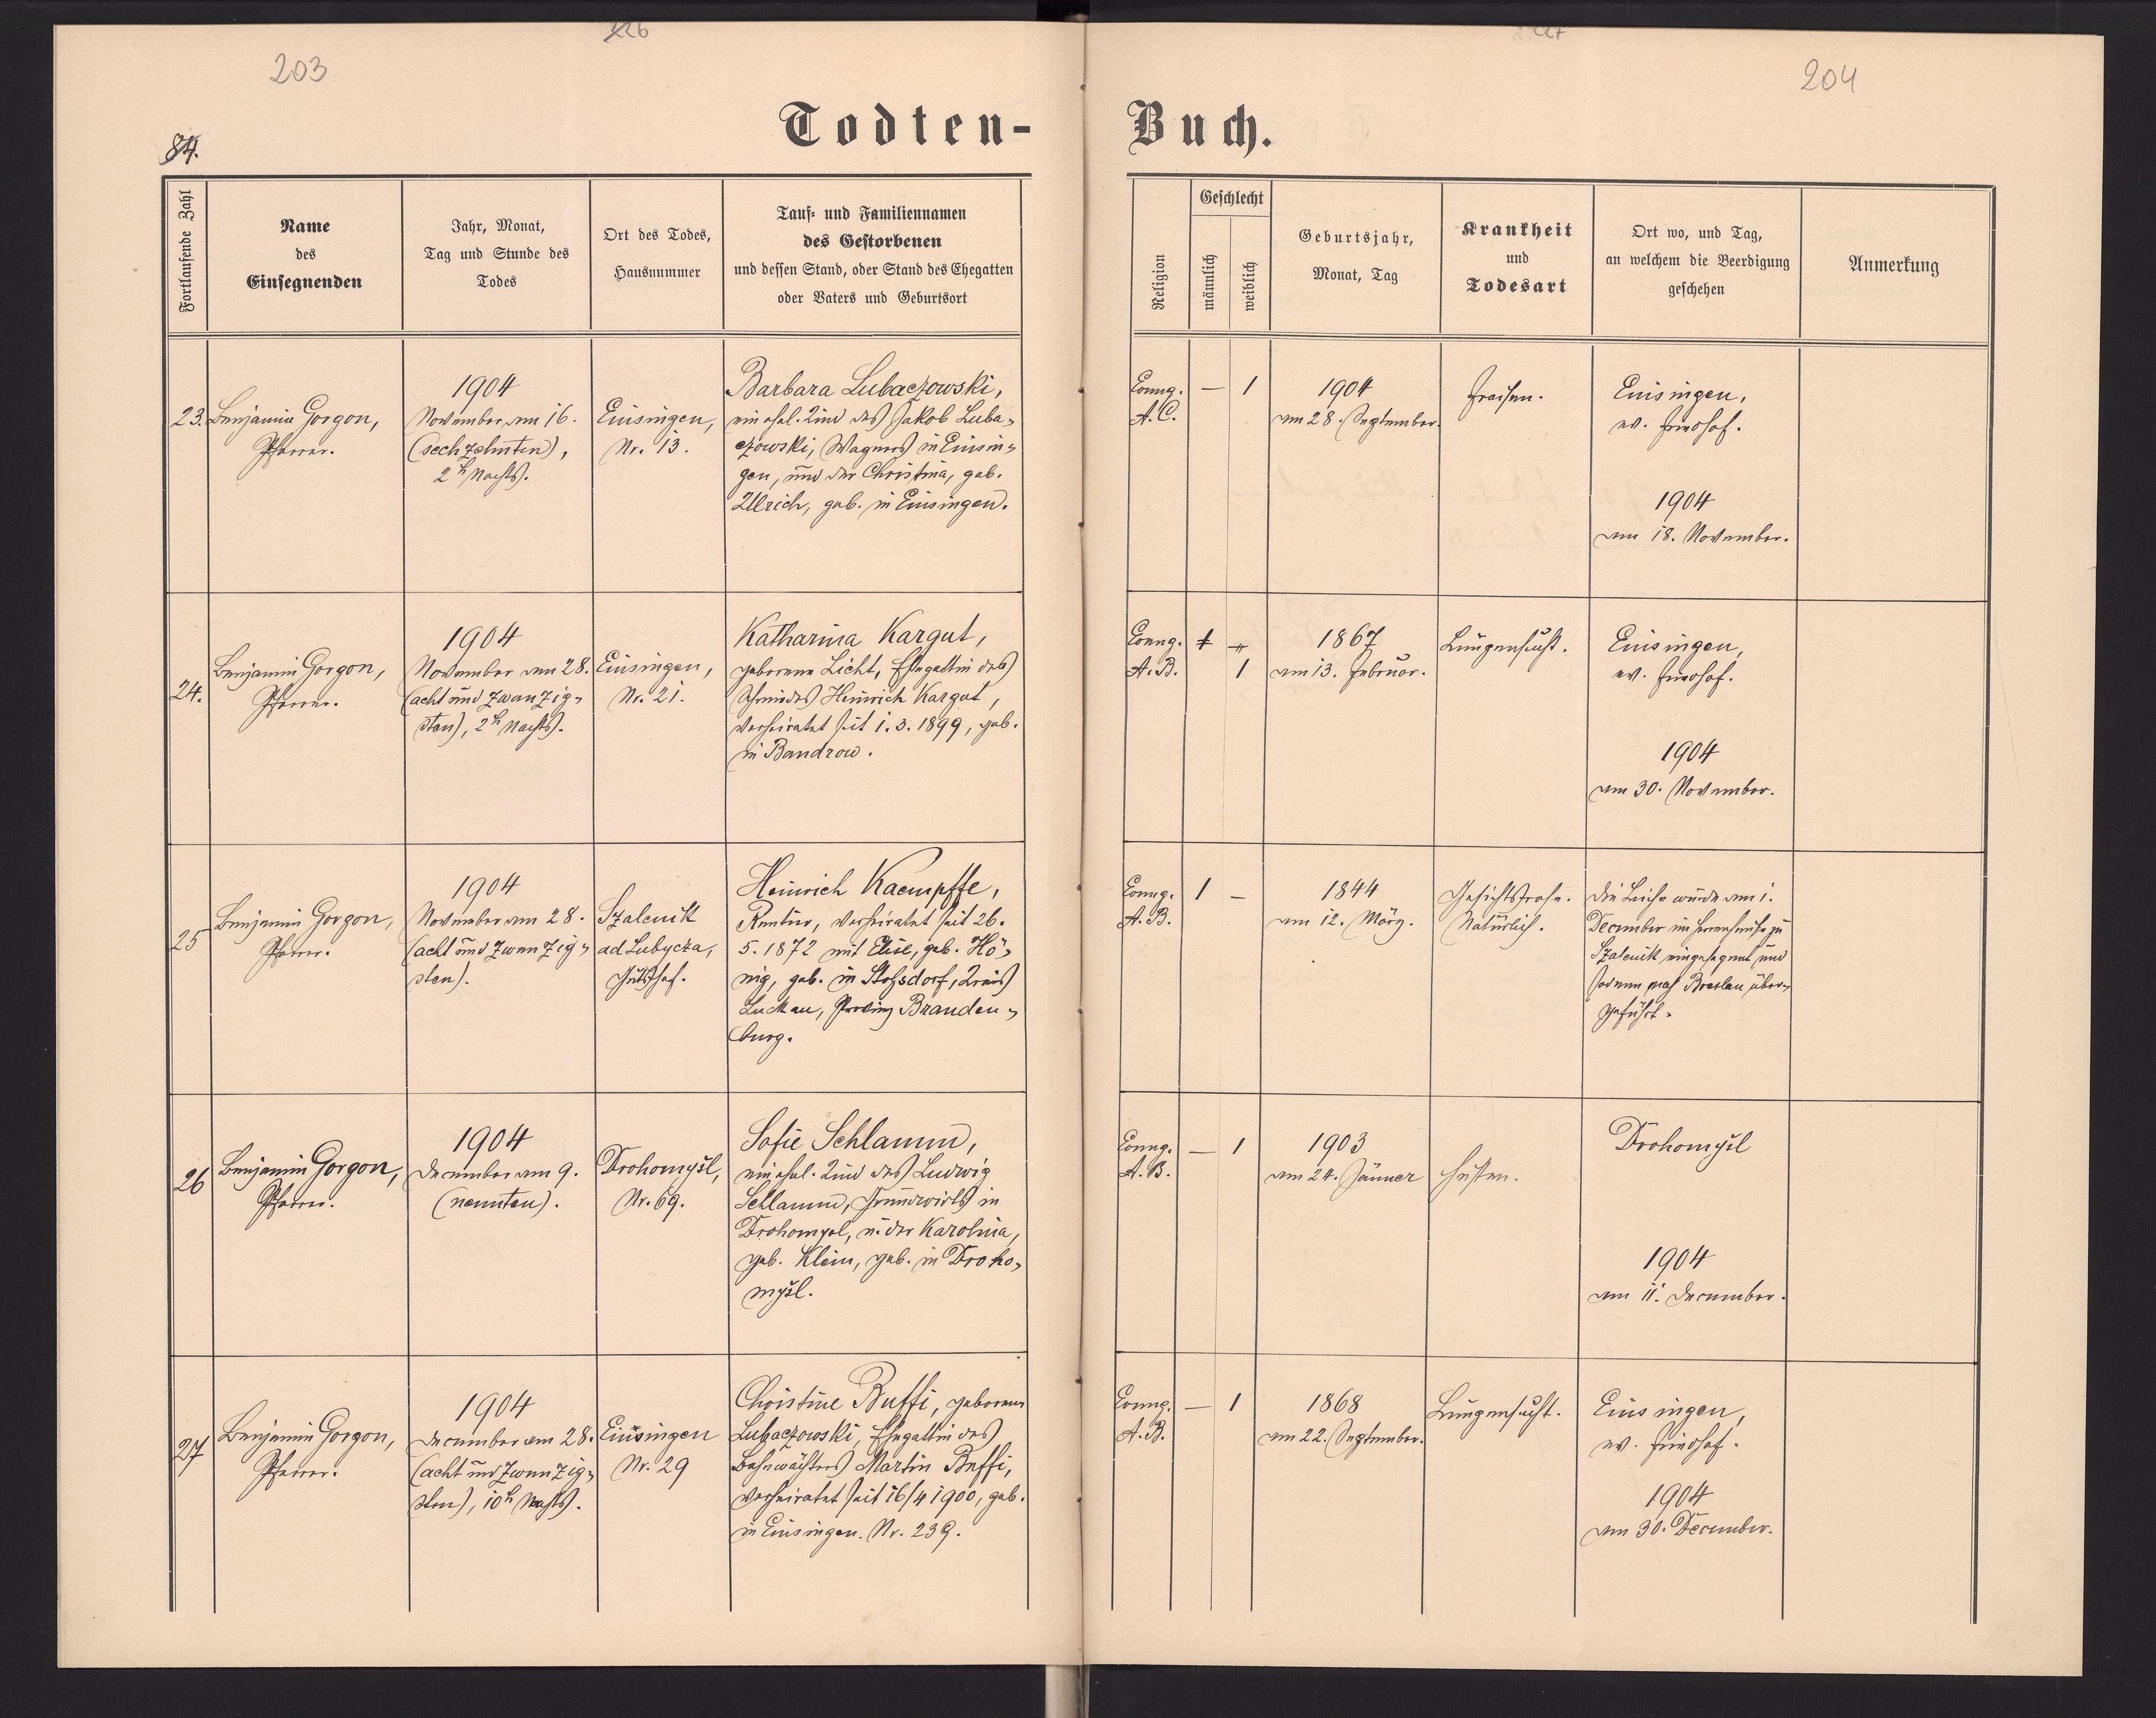 203
226
204
84.
Todten-
Buch.
Fortlaufende Zahl
Name
des
Einsegnenden
Jahr, Monat,
Tag und Stunde des
Todes
Ort des Todes,
Hausnummer
Tauf- und Familiennamen
des Gestorbenen
und dessen Stand, oder Stand des Ehegatten
oder Vaters und Geburtsort
Religion
Geschlecht
männlich
weiblich
Geburtsjahr,
Monat, Tag
Krankheit
und
Todesart
Ort wo, und Tag,
an welchem die Beerdigung
geschehen
Anmerkung
23.
Benjamin Gorgon,
Pfarrer.
1904
November am 16.
(sechzehnten),
2h Nachts.
Einsingen,
Nr. 13.
Barbara Lubaczowski,
ein ehel. Kind des Jakob Luba-
czowski, Wagners in Einsin-
gen, und der Christina, geb.
Ullrich, geb. in Einsingen.
Evang.
A.C.
—
1
1904
am 28. September.
Fraisen.
Einsingen,
ev. Friedhof.
1904
am 18. November.
24.
Benjamin Gorgon,
Pfarrer.
1904
November am 28.
(acht und zwanzig-
sten), 2h Nachts.
Einsingen,
Nr. 21.
Katharina Kargut,
geborene Licht, Ehegattin des
Schmiedes Heinrich Kargut,
verheiratet seit 1.3.1899, geb.
in Bandrow.
Evang.
A.B.
1
1867
am 13. Februar.
Lungensucht.
Einsingen,
ev. Friedhof.
1904
am 30. November.
25
Benjamin Gorgon,
Pfarrer.
1904
November am 28.
(acht und zwanzig-
sten).
Szalenik
ad Lubycza,
Gutshof.
Heinrich Kaempffe,
Rentier, verheiratet seit 26.
5. 1872 mit Elise, geb. Hö-
nig, geb. in Stohsdorf, Kreis
Luckau, Provinz Branden-
burg.
Evang.
A.B.
1
—
1844
am 12. März.
Gesichtsrose.
Natürlich.
Die Leiche wurde am 1.
December im Herrenhause zu
Szalenik eingesegnet und
sodann nach Breslau über-
geführt.
26
Benjamin Gorgon,
Pfarrer.
1904
December am 9.
(neunten).
Drohomyśl,
Nr. 69.
Sofie Schlamm,
ein ehel. Kind des Ludwig
Schlamm, Grundwirts in
Drohomysl, u. der Karolina,
geb. Klein, geb. in Droho-
myśl.
Evang.
A.B.
—
1
1903
am 24. Jänner
Husten.
Drohomyśl
1904
am 11. December.
27
Benjamin Gorgon,
Pfarrer.
1904
December am 28.
(acht und zwanzig-
sten), 10h Nachts.
Einsingen
Nr. 29
Christine Buffi, geborene
Lubaczowski, Ehegattin des
Bahnwächters Martin Buffi,
verheiratet seit 16/4 1900, geb.
in Einsingen. Nr. 239.
Evang.
A.B.
—
1
1868
am 22. September.
Lungensucht.
Einsingen,
ev. Friedhof.
1904
am 30. December.